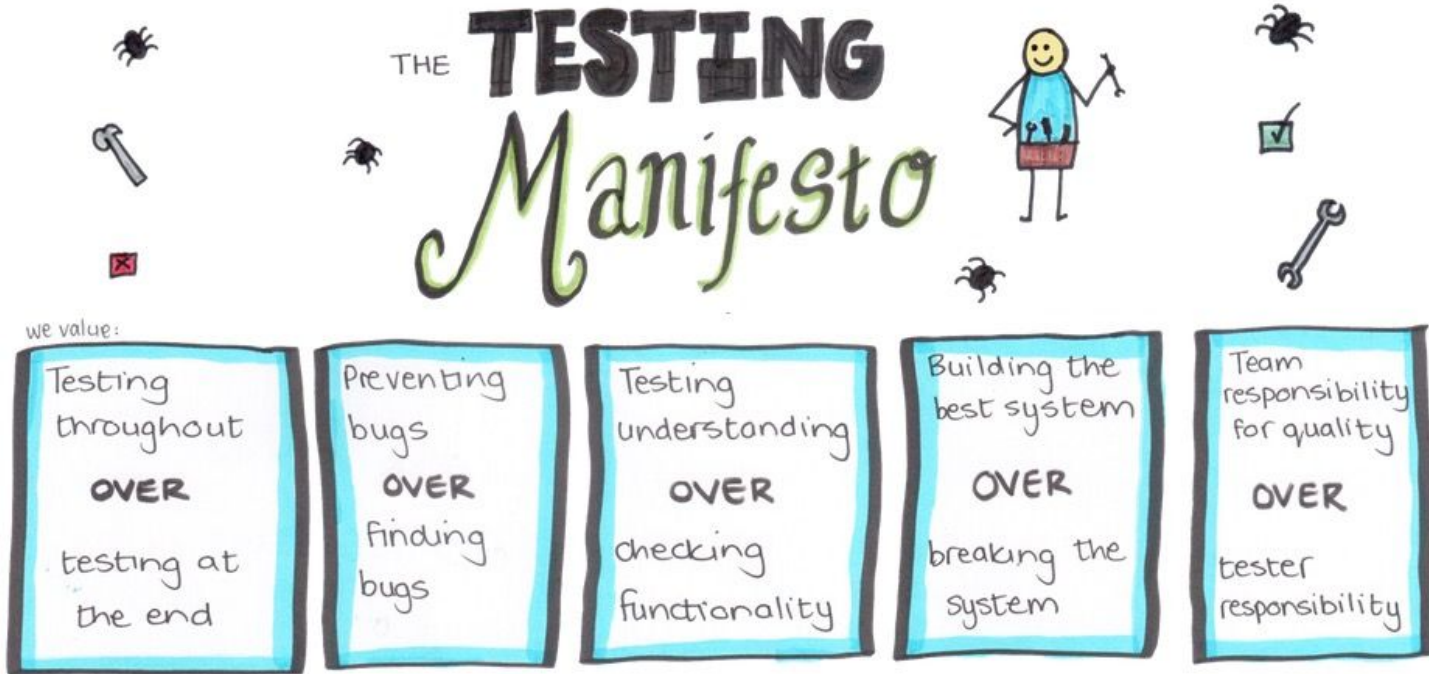 THE TESTING
Manifesto
we value:
Testing
throughout
OVER
testing at
the end
Preventing
bugs
OVER
finding
bugs
Testing
understanding
OVER
checking
functionality
Building the
best system
OVER
breaking the
system
Team
responsibility
for quality
OVER
tester
responsibility